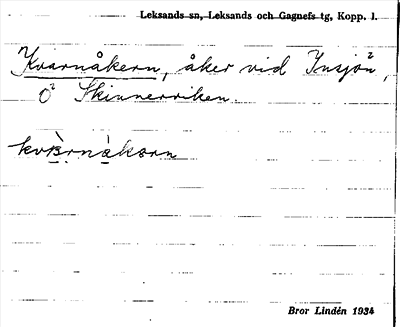 Leksands sn, Leksands och Gagnefs tg, Kopp. l.
Kvarnåkern, åker vid Insjön²,
O² Skinnerviken.
Bror Lindén 1934